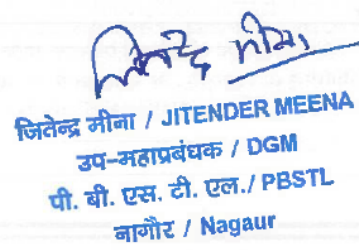 जितेन्द्र मीना
जितेन्द्र मीना / JITENDER MEENA
उप-महाप्रबंधक / DGM
पी. बी. एस. टी. एल./ PBSTL
नागौर / Nagaur